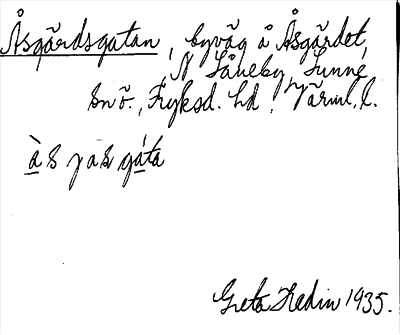 Åsgårdsgatan, byväg å Åsgårdet,
N Såneby, Sunne
sn ö., Fryksd. hd, Värml. l.
à s jas gáta
Greta Hedin 1935.